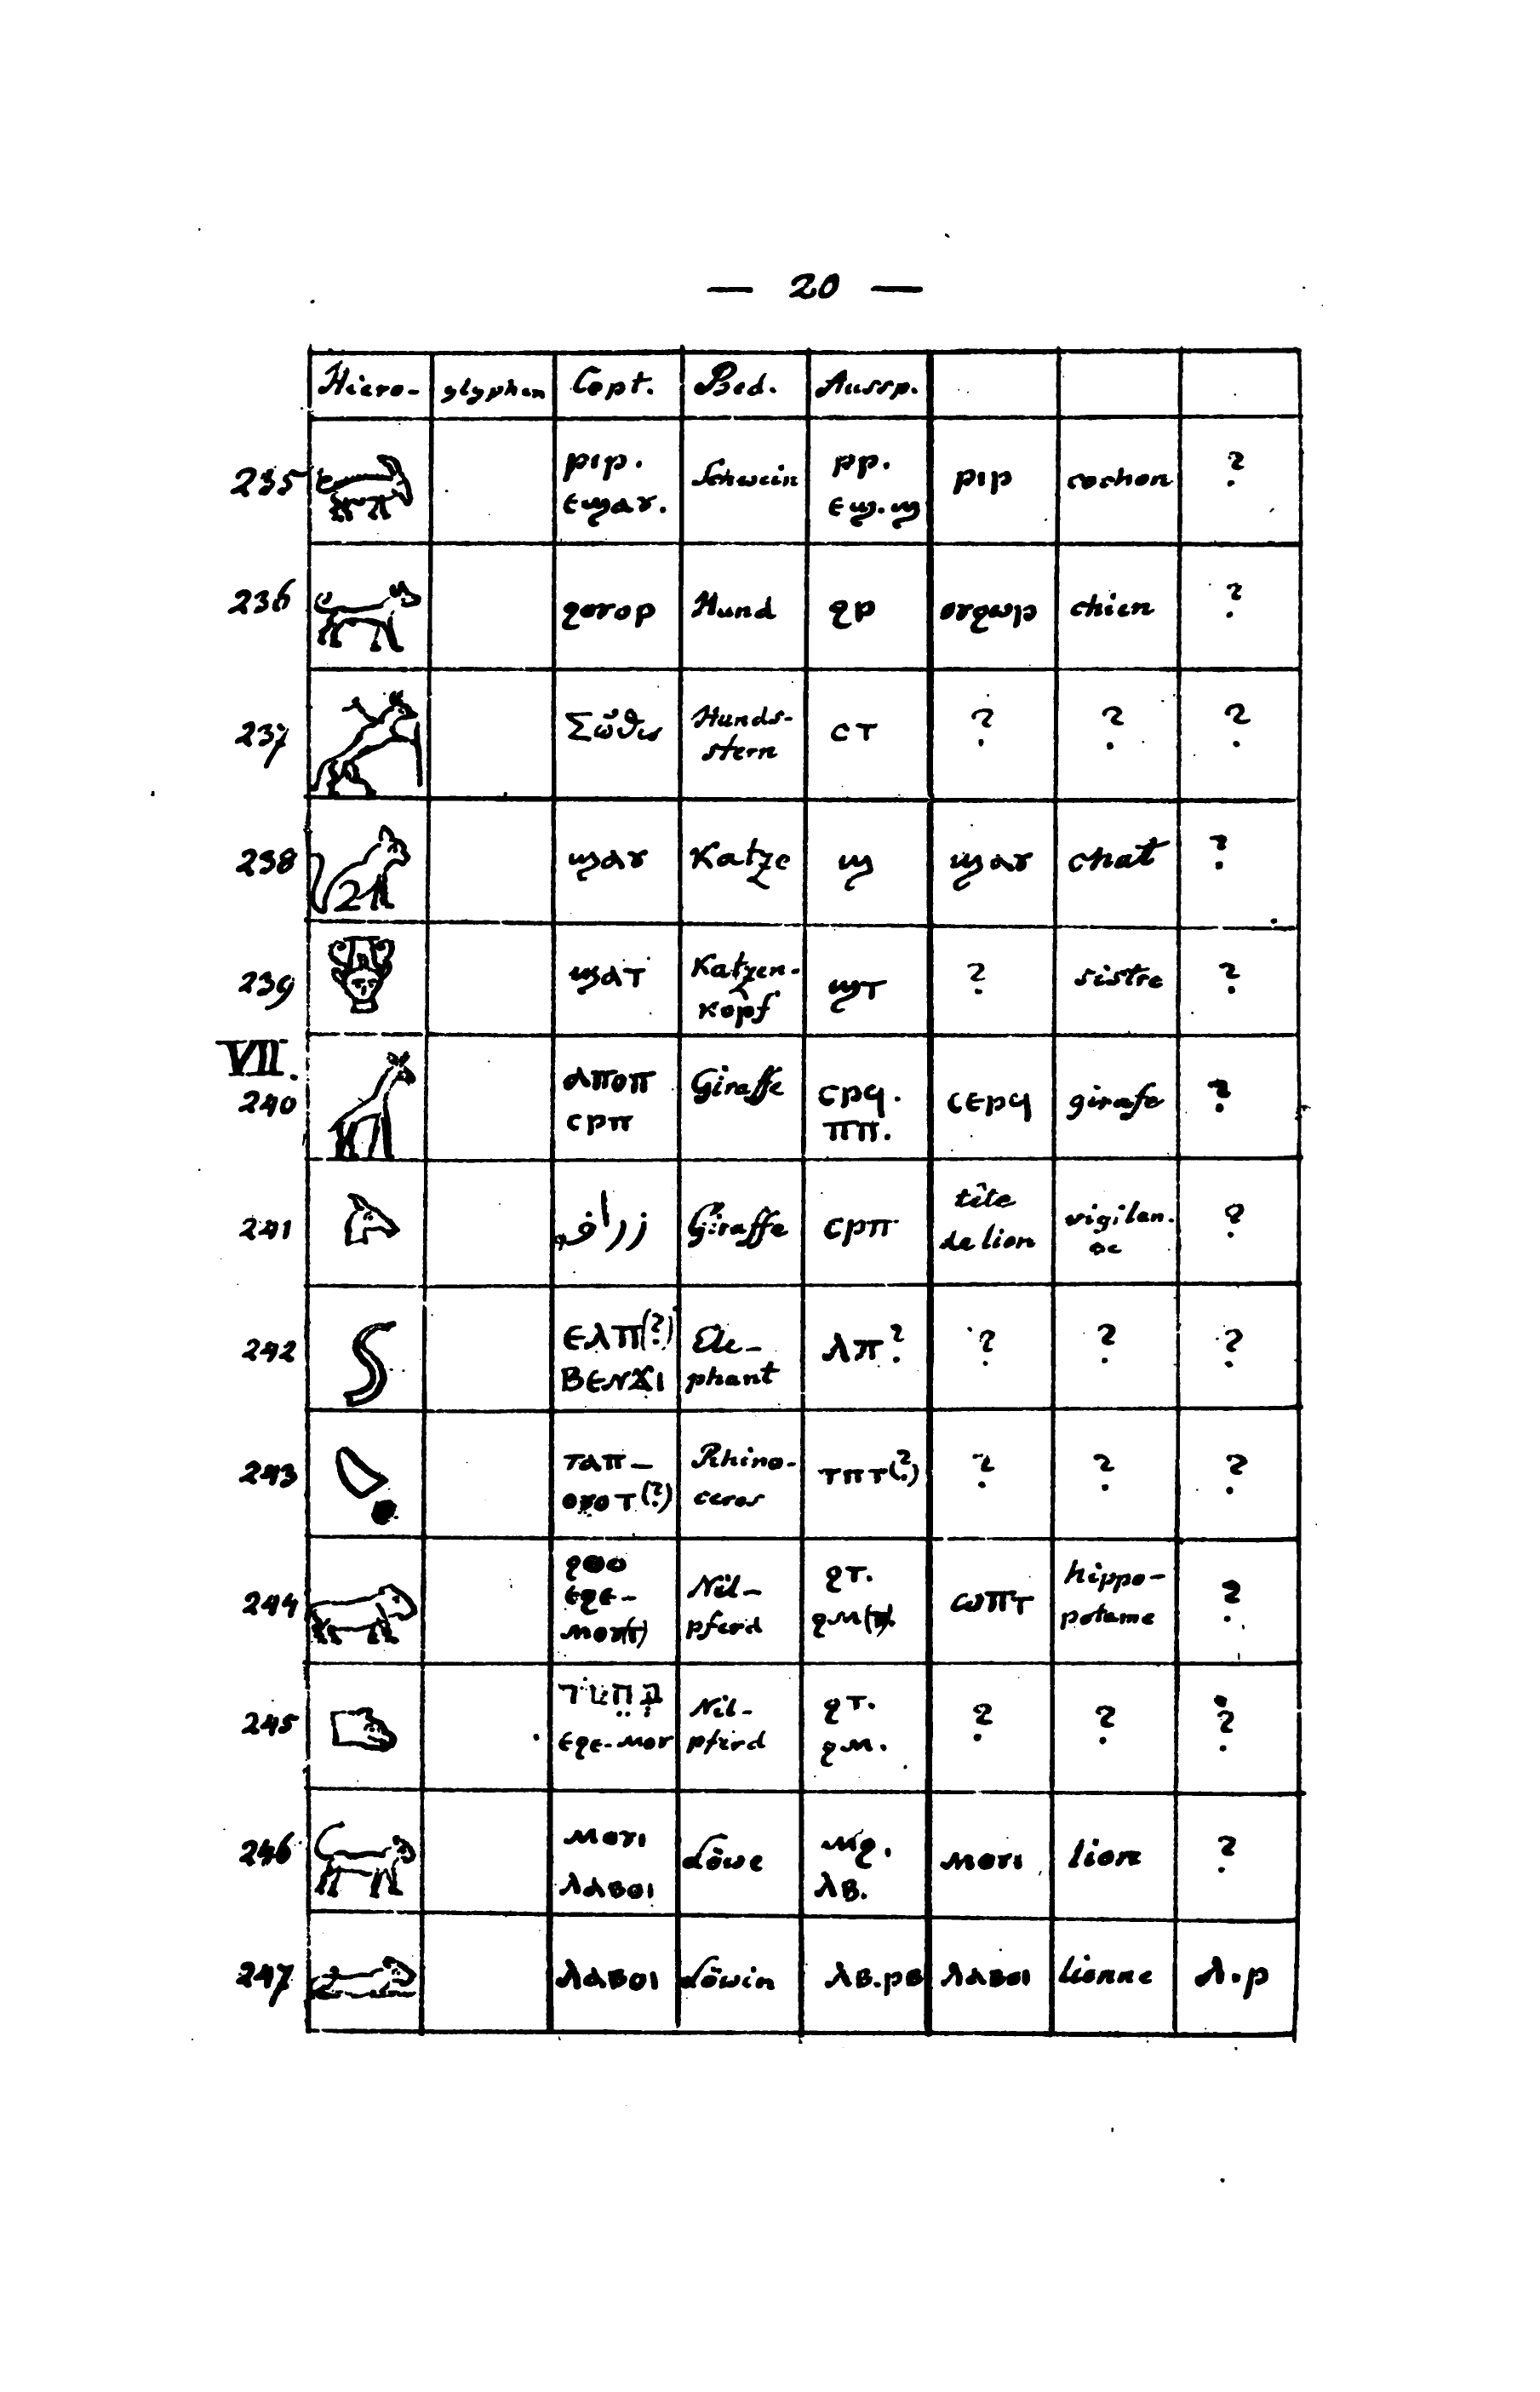 — 20 —
Hiero- glyphen Copt. Bed. Aussp.
235 ⲣⲓⲣ. ⲉϣⲁⲩ. Schwein ⲣⲣ. ⲉϣ.ϣ ⲣⲓⲣ cochon ?
236 ϩⲟⲩⲟⲣ Hund ϩⲣ ⲟⲩϩⲱⲣ chien ?
237 Σῶθις Hunds- stern ⲥⲧ ? ? ?
238 ϣⲁⲩ Katze ϣ ϣⲁⲩ chat ?
239 ϣⲁⲧ Katzen- kopf ϣⲧ ? sistre ?
VII.
240 ⲁⲡⲟⲡ ⲥⲣⲡ Giraffe ⲥⲣϥ. ⲡⲡ. ⲥⲉⲣϥ girafe ?
241 Giraffe ⲥⲣⲡ tête de lion vigilan. ce ?
242 ⲉⲗⲡ(?) ⲃⲉⲛϫⲓ Ele- phant ⲗⲡ? ? ? ?
243 ⲧⲁⲡ- ⲟⲩⲟⲧ(?) Rhino- ceros ⲧⲡⲧ(?) ? ? ?
244 ϩⲑⲟ ⲉϩⲉ- ⲙⲟⲩ(ⲧ) Nil- pferd ϩⲧ. ⲱⲡⲧ hippo- potame ?
245 ⲉϩⲉ-ⲙⲟⲩ Nil- pferd ϩⲧ. ϩⲙ. ? ? ?
246 ⲙⲟⲩⲓ ⲗⲁⲃⲟⲓ Löwe ⲙϩ. ⲗⲃ. ⲙⲟⲩⲓ lion ?
247 ⲗⲁⲃⲟⲓ Löwin ⲗⲃ.ⲣⲃ ⲗⲁⲃⲟⲓ lionne ⲗ.ⲣ